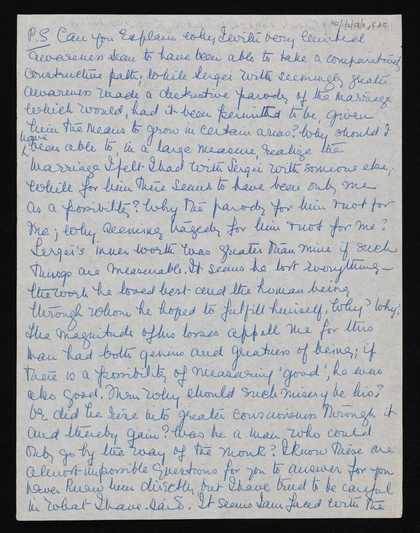 P.S Can you explain why I with very limited
awareness seem to have been able to take a comparatively
constructive path, while Sergei with seemingly greater
awareness made a destructive parody of the marriage
which would, had it been permitted to be, given
him the means to grow in certain areas? Why should I
have
been able to, in a large measure, realize the
marriage I felt I had with Sergei with someone else,
while for him there seems to have been only me
as a possibility? Why the parody for him & not for
me; why seeming tragedy for him & not for me?
Sergei's inner worth was greater than mine if such
things are measurable. It seems he lost everything –
the work he loved best and the human being
through whom he hoped to fulfill himself. Why? Why?
The magnitude of his losses appall me for this
man had both genius and greatness of being; if
there is a possibility of measuring 'good', he was
also good. Then why should such misery be his?
Or did he rise into greater consciousness through it
and thereby gain? Was he a man who could
only go by the way of the monk? I know these are
almost impossible questions for you to answer for you
never knew him directly but I have tried to be careful
in what I have said. It seems I am faced with the